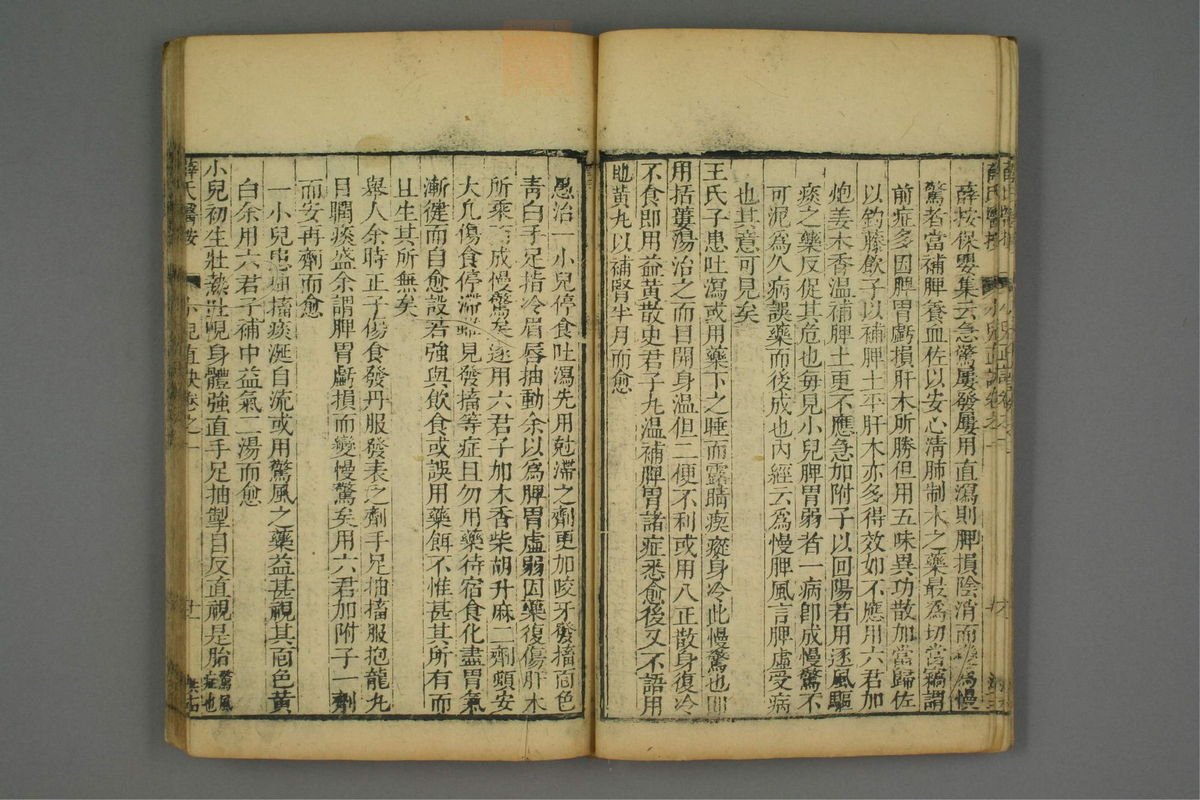 薛按保嬰集云急驚屢發屢用直瀉則脾損陰消而變為慢
驚者當補脾養血佐以安心清肺制木之藥最為切當竊謂
前症多因脾胃虧損肝木所勝但用五味異功散加當歸佐
以鈎藤飲子以補脾土平肝木亦多得效如不應用六君加
炮姜木香温補脾土更不應急加附子以回陽若用逐風驅
痰之藥反促其危也每見小兒脾胃弱者一病卽成慢驚不
可泥為久病誤藥而後成也內經云為慢脾風言脾虛受病
也其意可見矣
王氏子患吐瀉或用藥下之睡而露睛瘈瘲身冷此慢驚也即
用栝蔞湯治之而目開身温但二便不利或用八正散身復冷
不食即用益黃散史君子丸温補脾胃諸症悉愈後又不語用
地黃丸以補腎半月而愈
愚治一小兒停食吐瀉先用尅滯之劑更加咬牙發搐面色
青白手足指冷眉唇抽動余以為脾胃虛弱因藥復傷肝木
所乘成慢驚矣逐用六君子加木香柴胡升麻二劑頓安
大凡傷食停滯雖見發搐等症且勿用藥待宿食化盡胃氣
漸健而自愈設若強與飲食或誤用藥餌不惟甚其所有而
且生其所無矣
舉人余時正子傷食發丹服發表之劑手足抽搐服抱龍丸
目瞤痰盛余謂脾胃虧損而變慢驚矣用六君加附子一劑
而安再劑而愈
一小兒患抽搐痰涎自流或用驚風之藥益甚視其面色黃
白余用六君子補中益氣二湯而愈
小兒初生壯熱吐哯身體強直手足抽掣目反直視是胎驚風症也
薛氏醫按 小兒直訣卷之一